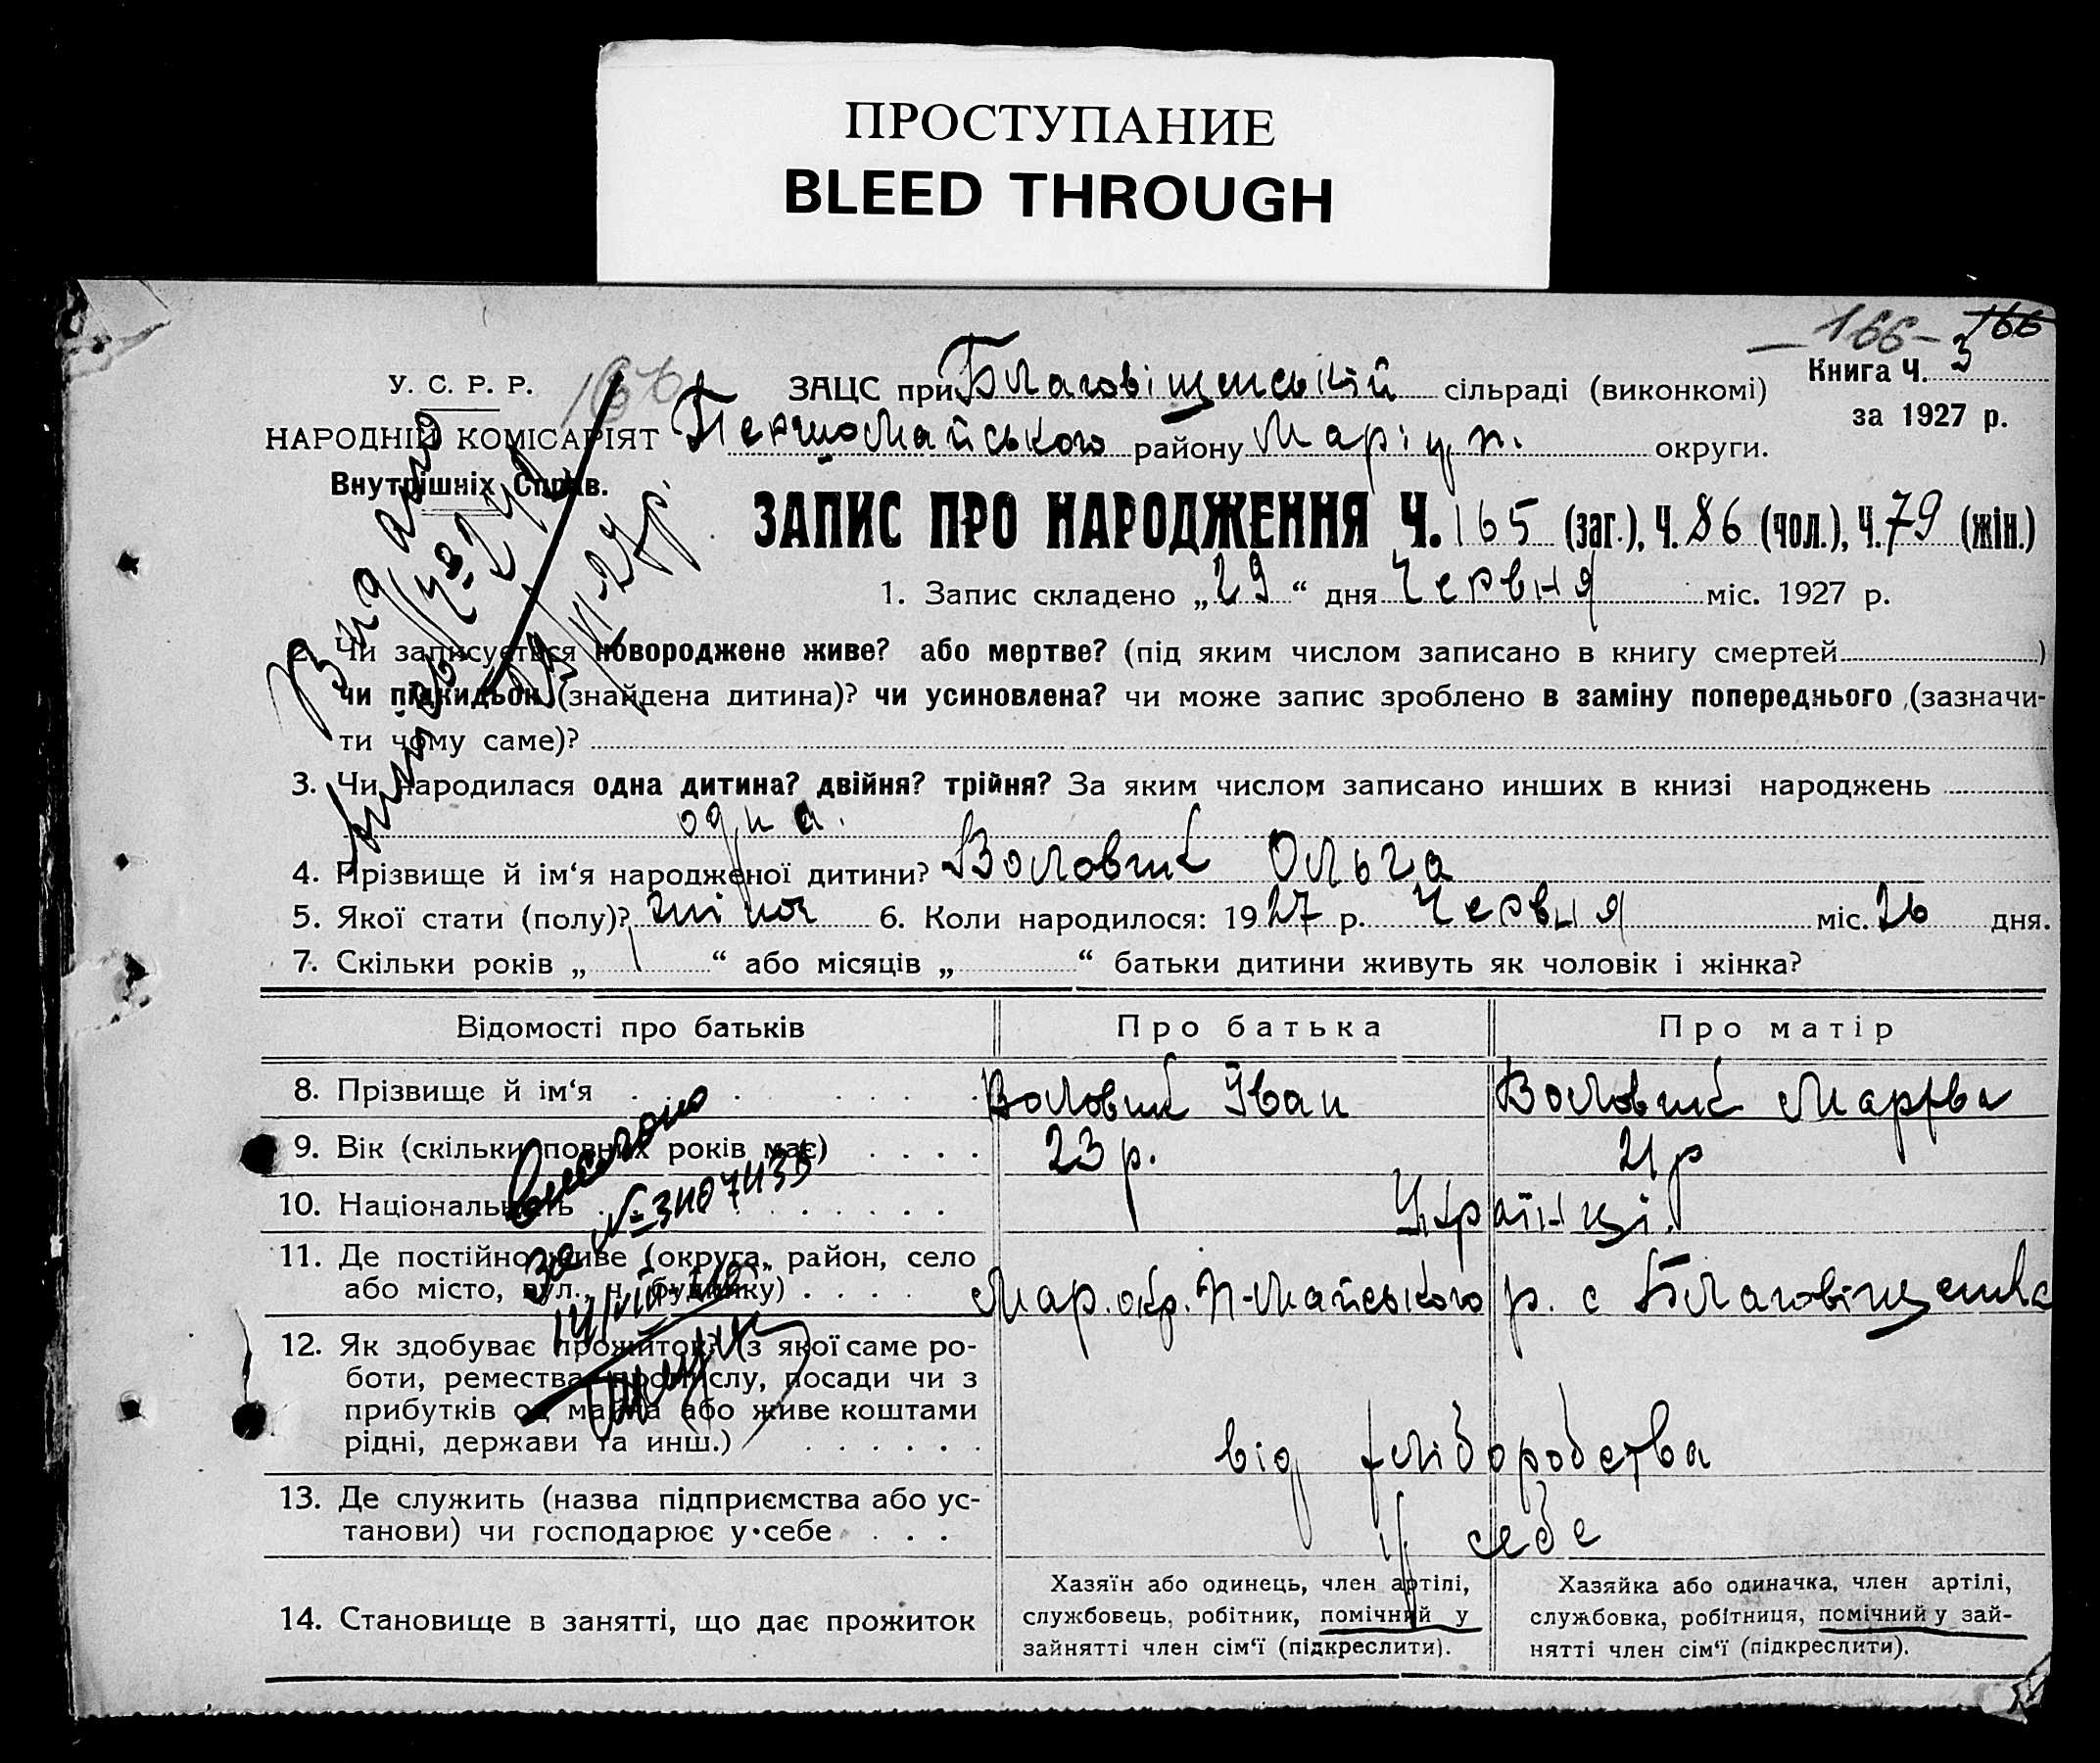 ПРОСТУПАНИЕ
BLEED THROUGH
-166- 166
У. С. Р. Р. 166 ЗАЦС при Благовіщенській сільраді (виконкомі) Книга Ч. 3
НАРОДНІЙ КОМІСАРІЯТ Першомайського району Маріуп. округи. за 1927 р.
Внутрішніх Справ.
ЗАПИС ПРО НАРОДЖЕННЯ Ч. 165 (заг.), Ч. 86 (чол.), Ч. 79 (жін.)
1. Запис складено „29“ дня Червня міс. 1927 р.
2. Чи записується новороджене живе? або мертве? (під яким числом записано в книгу смертей )
чи підкидьок (знайдена дитина)? чи усиновлена? чи може запис зроблено в заміну попереднього (зазначи-
ти чому саме)?
3. Чи народилася одна дитина? двійня? трійня? За яким числом записано инших в книзі народжень
одна.
4. Прізвище й ім‘я народженої дитини? Воловик Ольга
5. Якої стати (полу)? жіноч 6. Коли народилося: 1927 р. Червня міс. 26 дня.
7. Скільки років „1“ або місяців „ “ батьки дитини живуть як чоловік і жінка?
Відомості про батьків Про батька Про матір
8. Прізвище й ім‘я Воловик Іван Воловик Марфва
9. Вік (скільки повних років має) 23 р. 21 р
10. Національність Українці.
11. Де постійно живе (округа, район, село
або місто, вул., ч. будинку) Мар. окр. П-Майського р. с Благовіщенка
12. Як здобуває прожиток? (з якої саме ро-
боти, ремества, промислу, посади чи з
прибутків од майна або живе коштами
рідні, держави та инш.) від хліборобства
13. Де служить (назва підприємства або ус-
танови) чи господарює у себе у себе
14. Становище в занятті, що дає прожиток
Хазяїн або одинець, член артілі,
службовець, робітник, помічний у
зайнятті член сім‘ї (підкреслити).
Хазяйка або одиначка, член артілі,
службовка, робітниця, помічний у зай-
нятті член сім‘ї (підкреслити).
Видано
за №